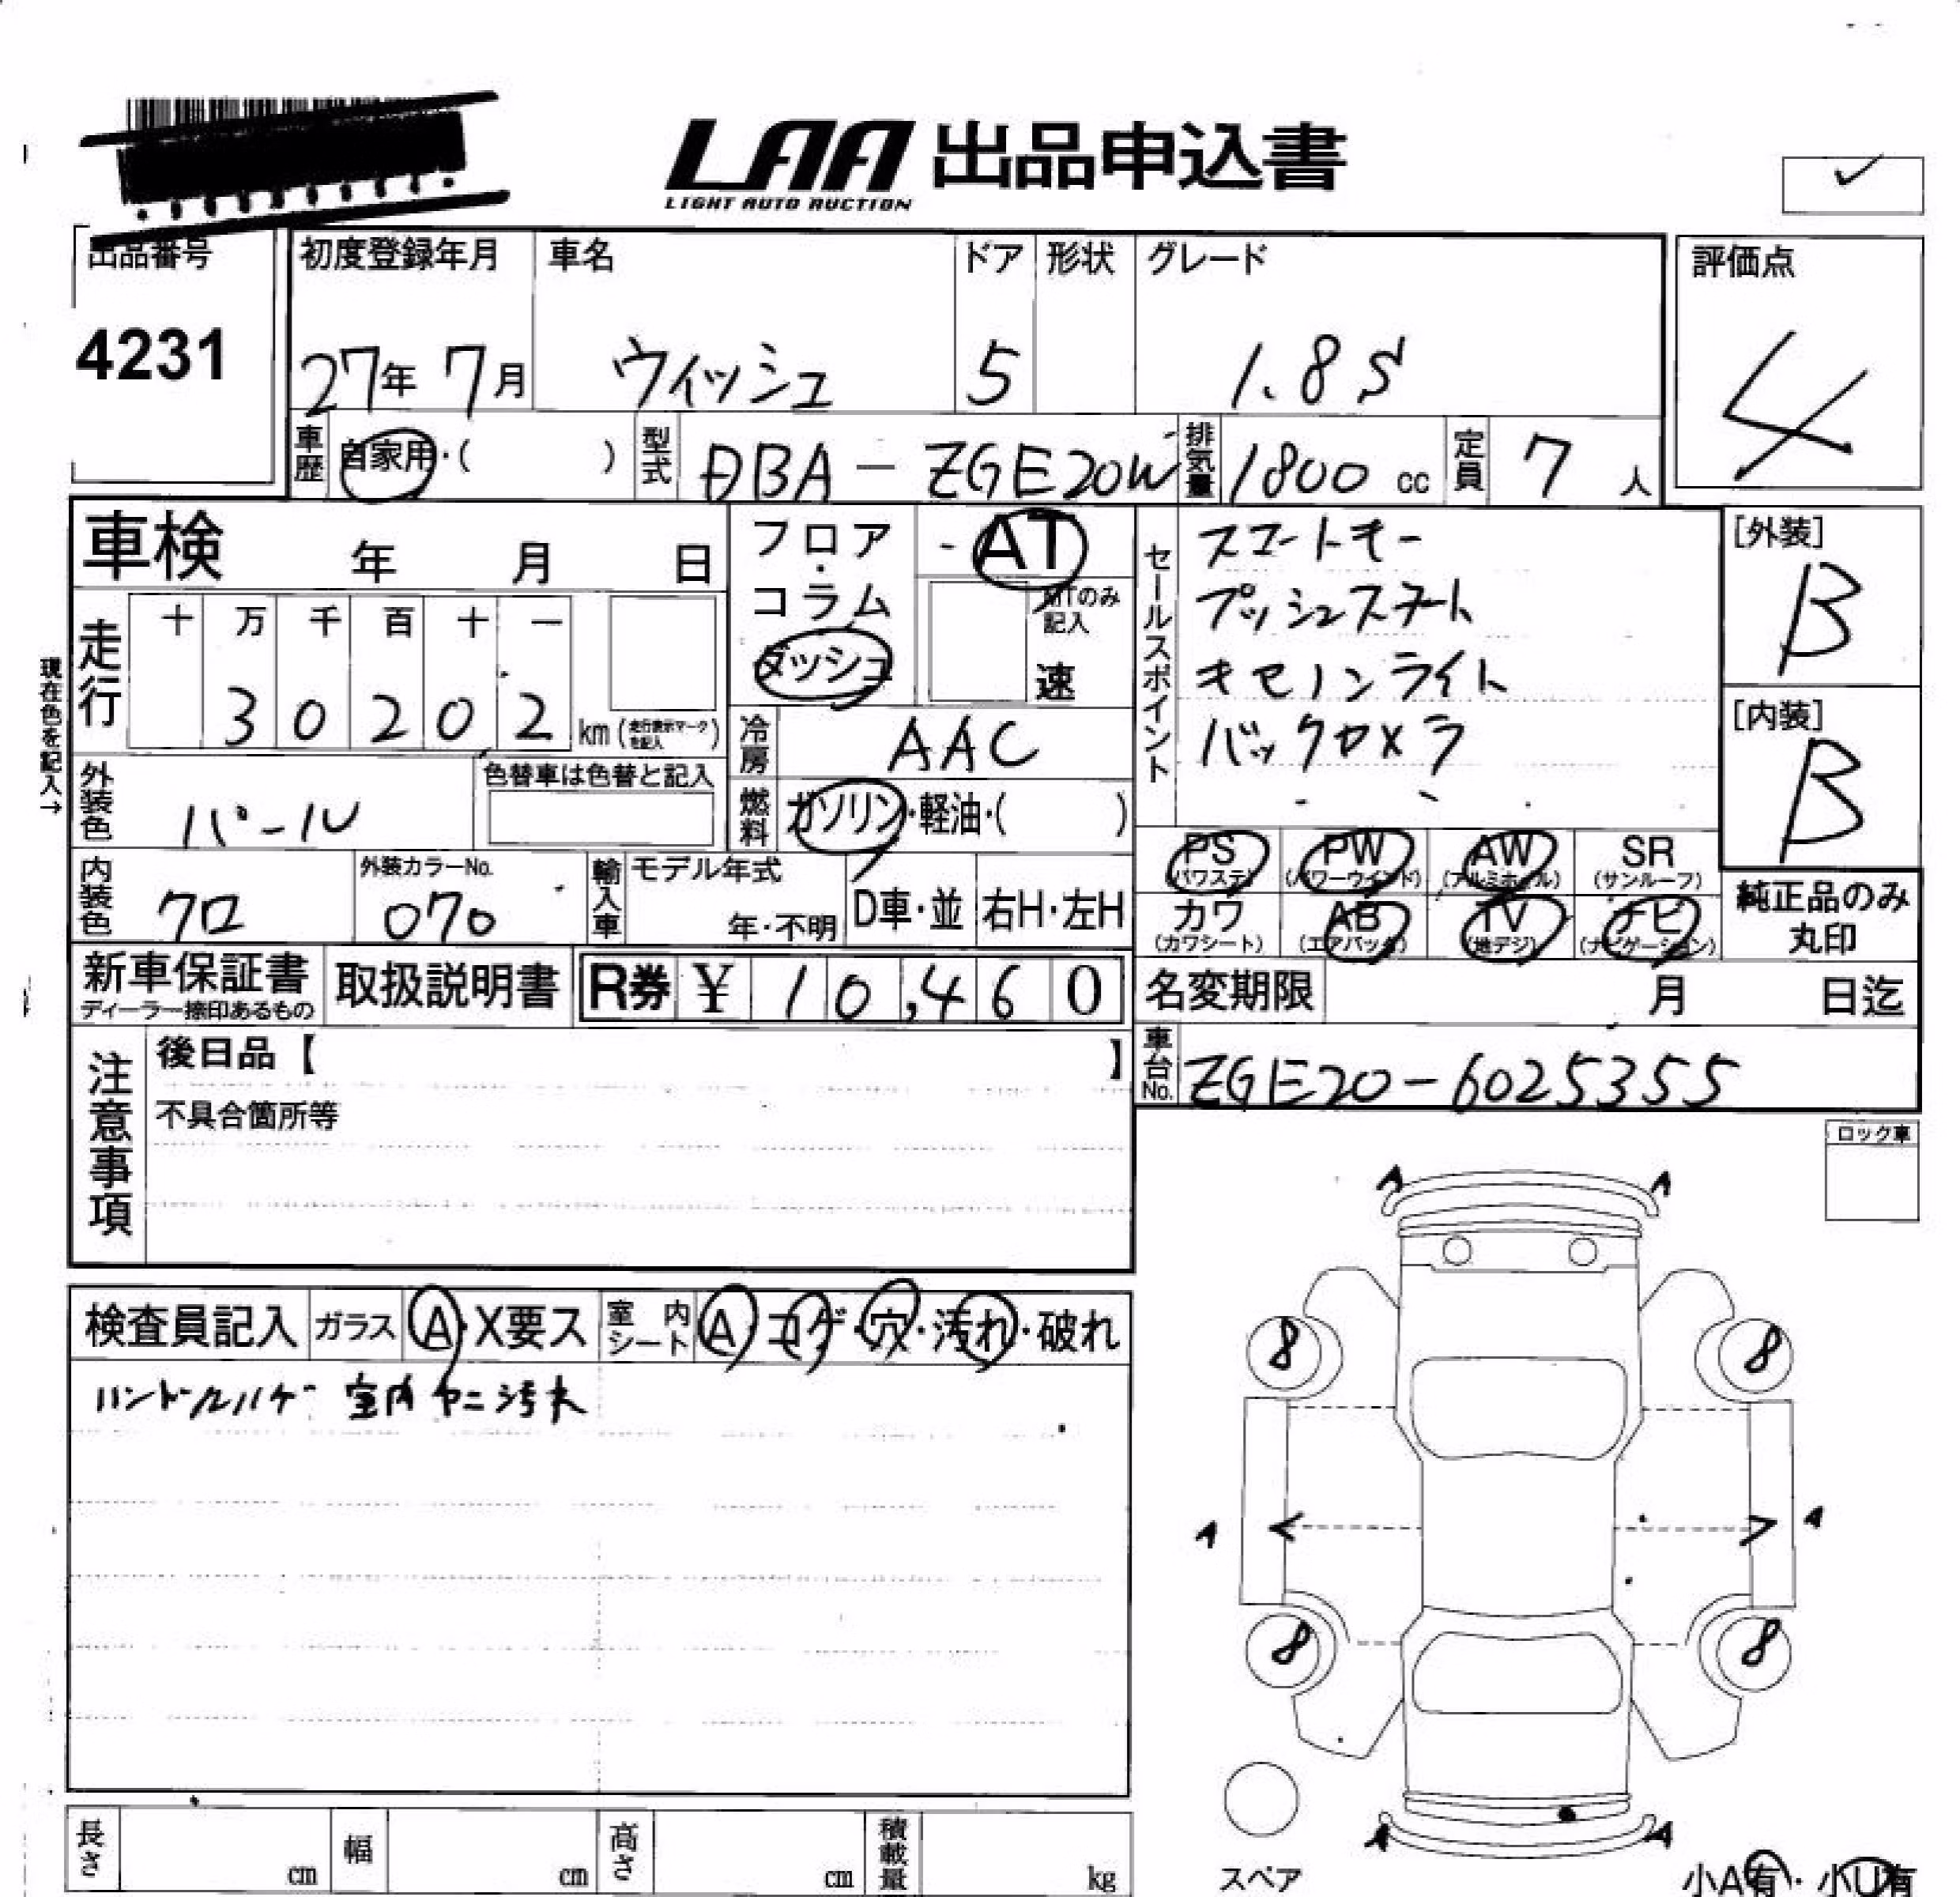 LAA 出品申込書
LIGHT AUTO AUCTION
出品番号 初度登録年月 車名 ドア 形状 グレード 評価点
4231 27年 7月 ウィッシュ 5 1.8S 4
車歴 自家用・( ) 型式 DBA-ZGE20W 排気量 1800 cc 定員 7 人
車検 年 月 日
フロア・コラム
ダッシュ
AT
MTのみ記入
速
セールスポイント
スマートキー
プッシュスタート
キセノンライト
バックカメラ
[外装]
B
[内装]
B
現在色を記入→
走行 十 万 千 百 十 一
3 0 2 0 2 km(走行表示マークを記入)
冷房 AAC
外装色 パール 色替車は色替と記入
燃料 ガソリン・軽油・( )
内装色 クロ 外装カラーNo. 070 輸入車 モデル年式 年・不明 D車・並 右H・左H
PS (パワステ) PW (パワーウインド) AW (アルミホイル) SR (サンルーフ)
カワ (カワシート) AB (エアバッグ) TV (地デジ) ナビ (ナビゲーション)
純正品のみ
丸印
新車保証書 取扱説明書 R券 ¥ 10,460
ディーラー捺印あるもの
名変期限 月 日迄
車台No. ZGE20-6025355
注意事項
後日品【 】
不具合箇所等
ロック車
検査員記入 ガラス A・X要ス 室内シート A・コゲ・穴・汚れ・破れ
ハンドルハゲ 室内ヤニ汚レ
A A
8 8
A A
8 8
A A
スペア
小A有・小U有
長さ cm 幅 cm 高さ cm 積載量 kg